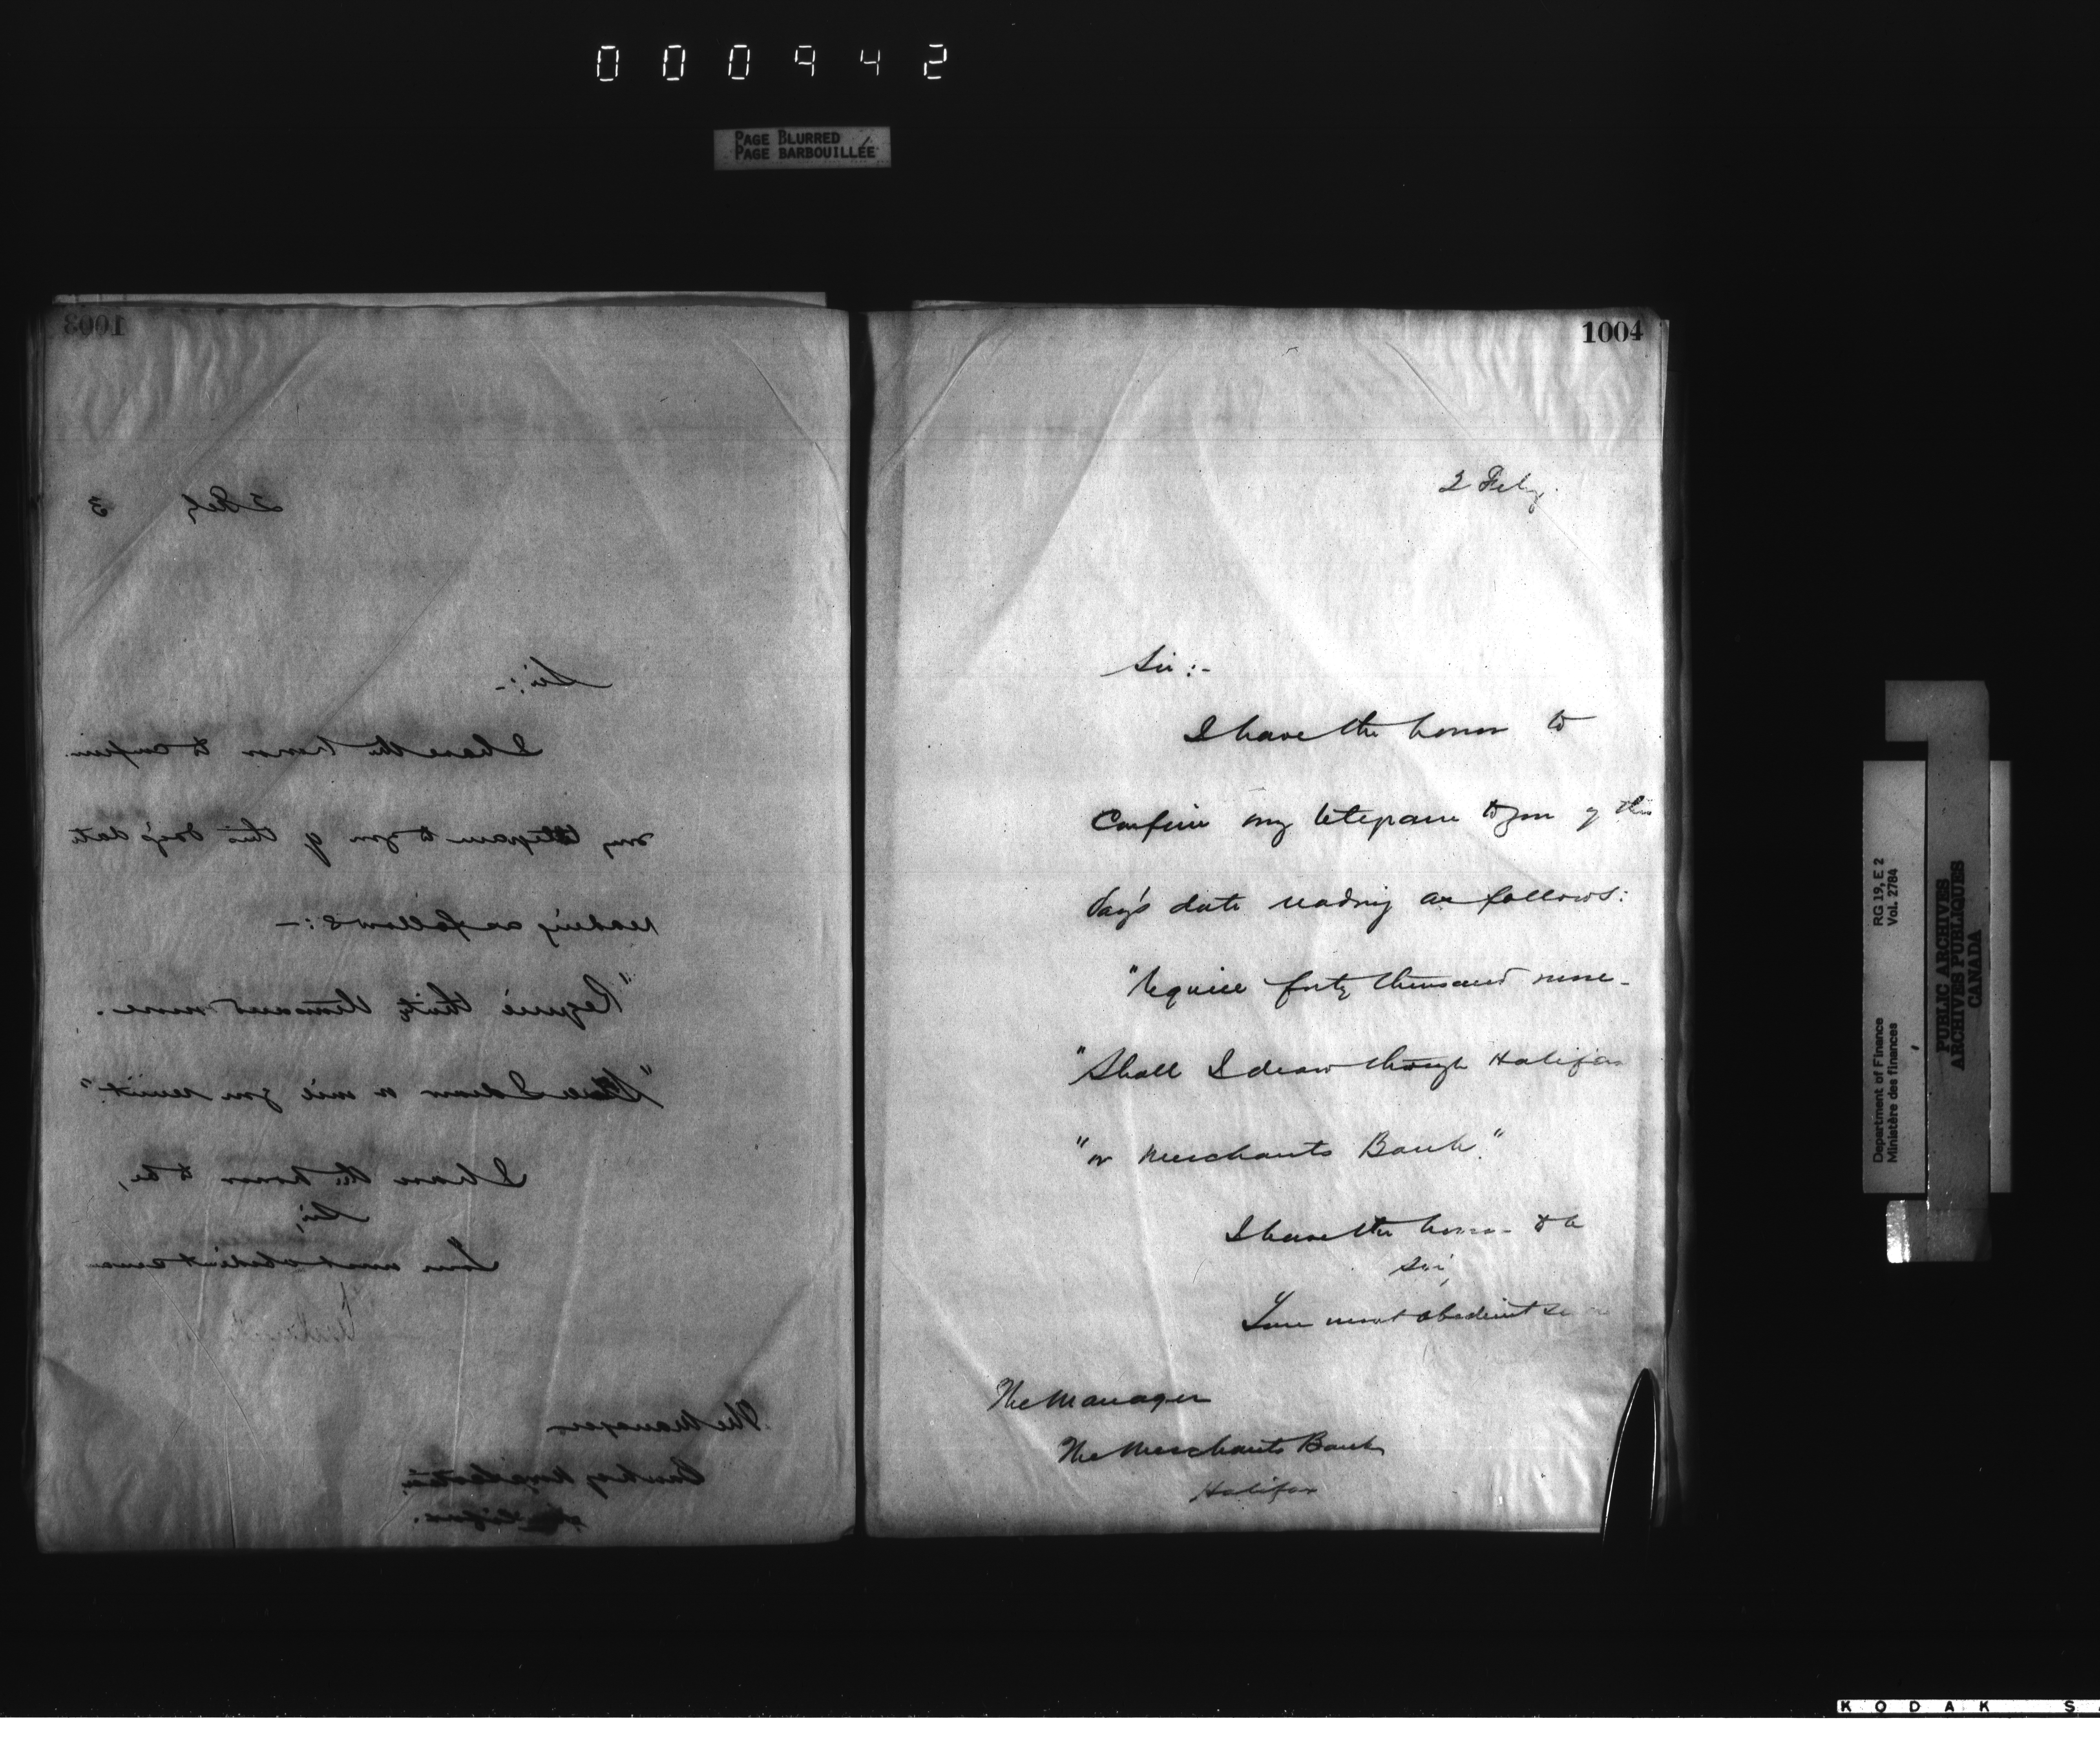 000942
PAGE BLURRED
PAGE BARBOUILLÉE
1003
2 Feby 3
Sir:-
I have the honor to confirm
my telegram to you of this day's date
reading as follows:-
"Require thirty thousand more.
"Shall I draw or will you remit."
I have the honor to be,
Sir,
Your most obedient
The Manager
Bank of Nova Scotia
Halifax.
1004
2 Feby.
Sir:-
I have the honor to
confirm my telegram to you of this
day's date reading as follows:
"Require forty thousand more-
"Shall I draw through Halifax
"or Merchants Bank."
I have the honor to be
Sir,
Your most obedient
The Manager
The Merchants Bank
Halifax
Department of Finance
Ministère des finances
RG 19, E 2
Vol. 2784
PUBLIC ARCHIVES
ARCHIVES PUBLIQUES
CANADA
KODAK